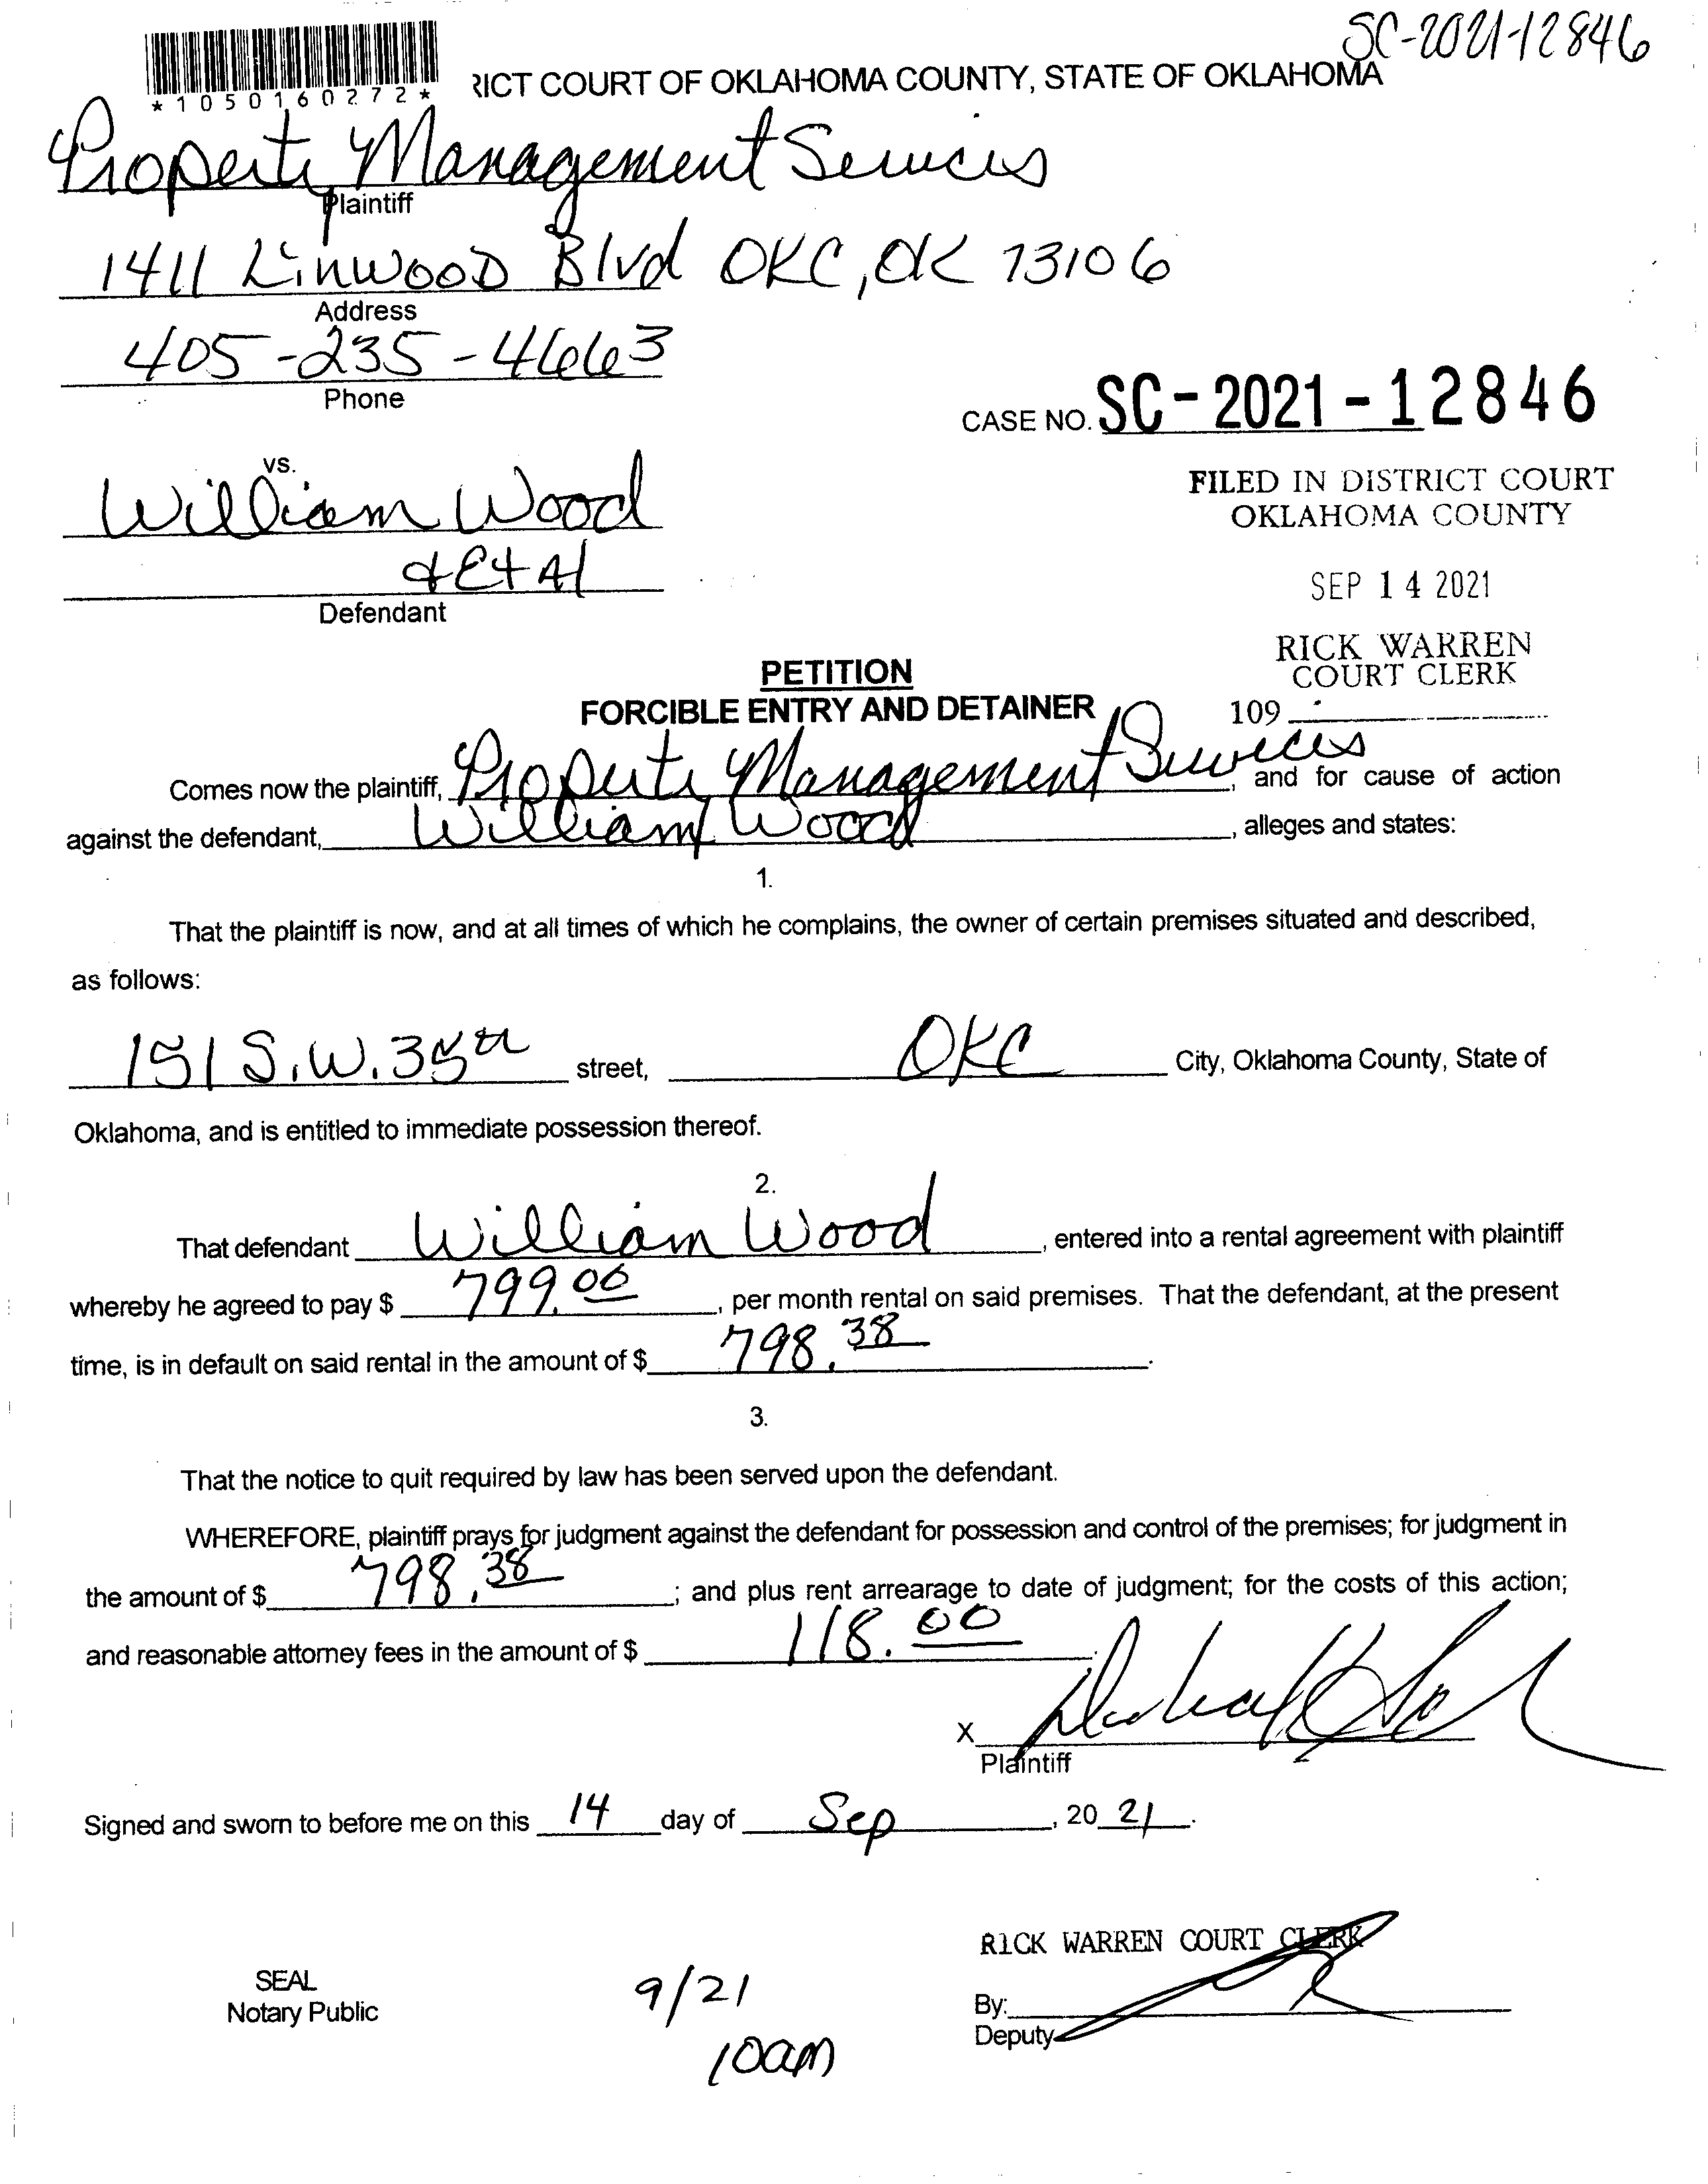 SC-2021-12846
*1050160272*
RICT COURT OF OKLAHOMA COUNTY, STATE OF OKLAHOMA
Property Management Services
Plaintiff
1411 Linwood Blvd OKC, OK 73106
Address
405-235-4663
Phone
CASE NO. SC-2021-12846
vs.
William Wood
& Et Al
Defendant
FILED IN DISTRICT COURT
OKLAHOMA COUNTY
SEP 14 2021
RICK WARREN
COURT CLERK
109
PETITION
FORCIBLE ENTRY AND DETAINER
Comes now the plaintiff, Property Management Services, and for cause of action
against the defendant, William Wood, alleges and states:
1.
That the plaintiff is now, and at all times of which he complains, the owner of certain premises situated and described,
as follows:
151 S.W. 35th street, OKC City, Oklahoma County, State of
Oklahoma, and is entitled to immediate possession thereof.
2.
That defendant William Wood, entered into a rental agreement with plaintiff
whereby he agreed to pay $ 799.00, per month rental on said premises. That the defendant, at the present
time, is in default on said rental in the amount of $ 798.38.
3.
That the notice to quit required by law has been served upon the defendant.
WHEREFORE, plaintiff prays for judgment against the defendant for possession and control of the premises; for judgment in
the amount of $ 798.38; and plus rent arrearage to date of judgment; for the costs of this action;
and reasonable attorney fees in the amount of $ 118.00.
X
Plaintiff
Signed and sworn to before me on this 14 day of Sep, 20 21.
RICK WARREN COURT CLERK
SEAL
Notary Public
9/21
10am
By:
Deputy